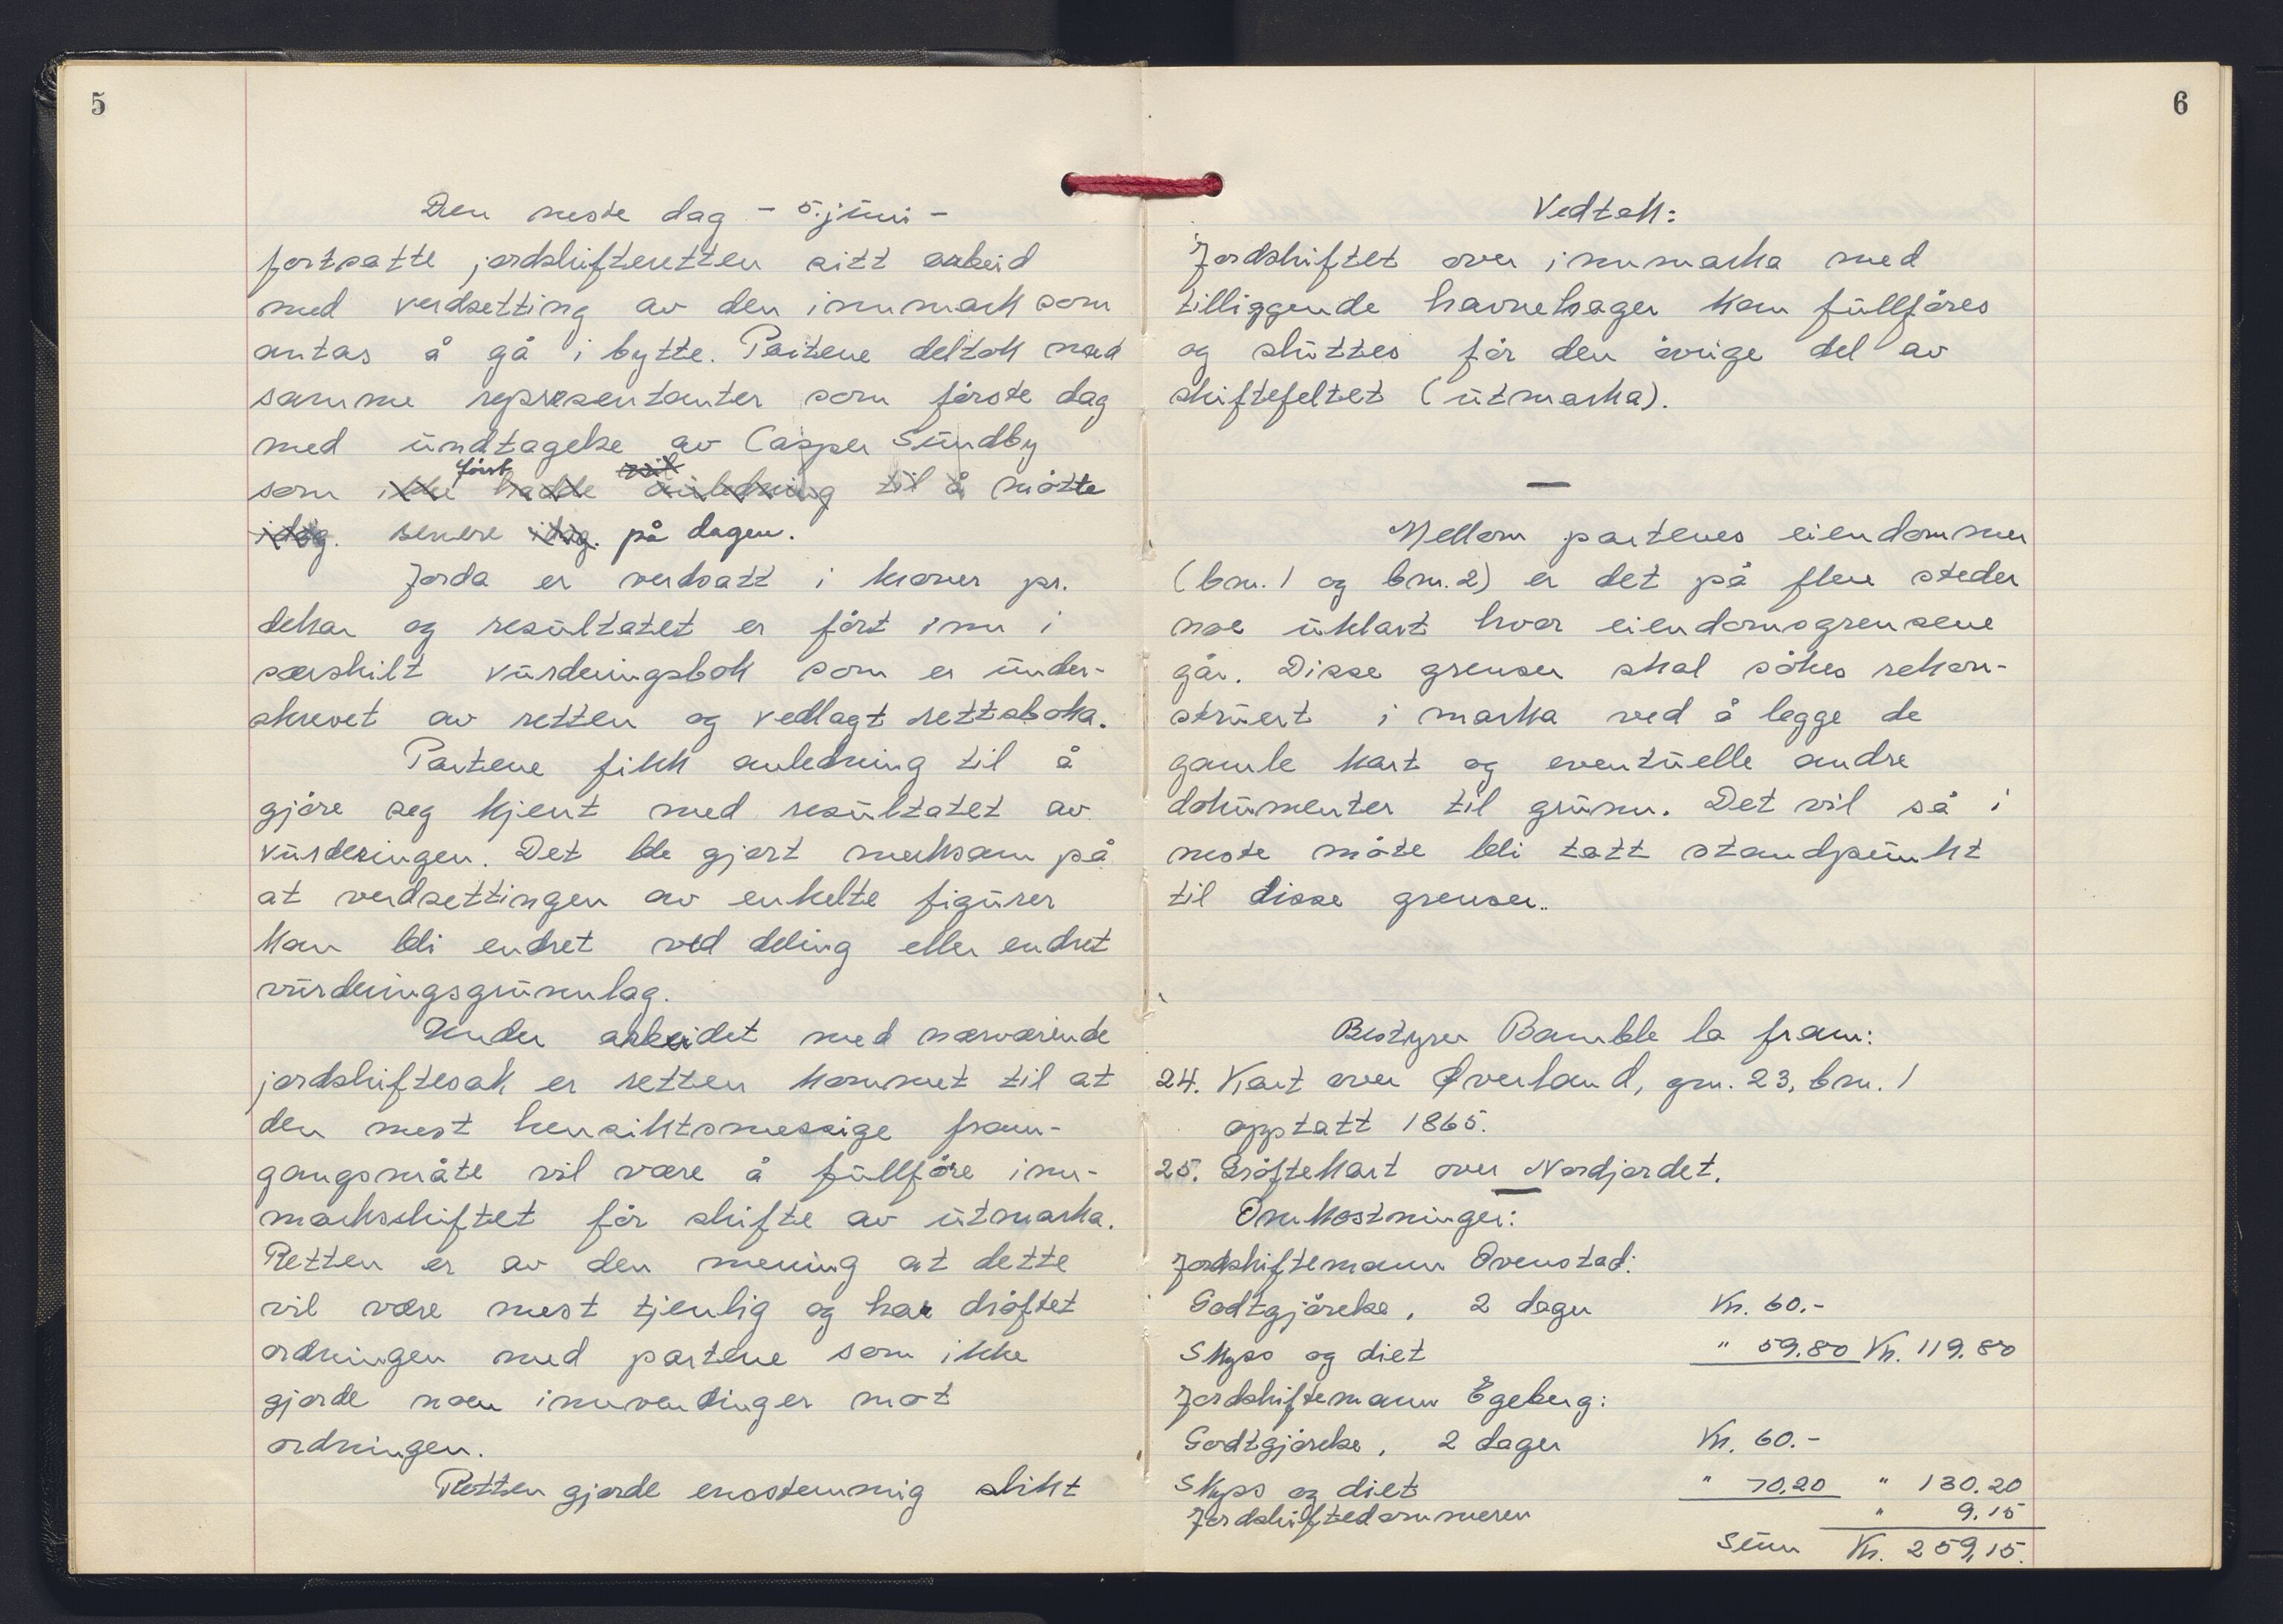 5
Den neste dag - 5. juni -
fortsatte jordskifteretten sitt arbeid
med verdsetting av den innmark som
antas å gå i bytte. Partene deltok med
samme representanter som første dag
med undtagelse av Casper Sundby
først
som ikke hadde anledning til å møtte
idag. senere idag. på dagen.
Jorda er verdsatt i kroner pr.
dekar og resultatet er ført inn i
særskilt vurderingsbok som er under-
skrevet av retten og vedlagt rettsboka.
Partene fikk anledning til å
gjøre seg kjent med resultatet av
vurderingen. Det ble gjort merksam på
at verdsettingen av enkelte figurer
kan bli endret ved deling eller endret
vurderingsgrunnlag.
Under arbeidet med nærværende
jordskiftesak er retten kommet til at
den mest hensiktsmessige fram-
gangsmåte vil være å fullføre inn-
markskiftet før skifte av utmarka.
Retten er av den mening at dette
vil være mest tjenlig og har drøftet
ordningen med partene som ikke
gjorde noen innvendinger mot
ordningen.
Retten gjorde enstemmig slikt
6
Vedtak:
Jordskiftet over innmarka med
tilliggende havnehager kan fullføres
og sluttes før den øvrige del av
skiftefeltet (utmarka).
—
Mellom partenes eiendommer
(bnr. 1 og bnr. 2) er det på flere steder
noe uklart hvor eiendomsgrensene
går. Disse grenser skal søkes rekon-
struert i marka ved å legge de
gamle kart og eventuelle andre
dokumenter til grunn. Det vil så i
neste møte bli tatt standpunkt
til disse grenser.
Bestyrer Bamble la fram:
24. Kart over Øverland, gnr. 23, bnr. 1
opptatt 1865.
25. Grøftekart over Nordjordet.
—
Omkostninger:
Jordskiftemann Ovenstad:
Godtgjørelse, 2 dager Kr. 60.-
Skyss og diet " 59.80 Kr. 119.80
Jordskiftemann Egeberg:
Godtgjørelse, 2 dager Kr. 60.-
Skyss og diet " 70.20 " 130.20
Jordskiftedommeren " 9.15
Sum Kr. 259,15.